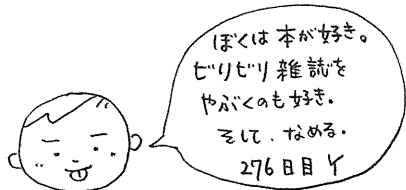 ぼくは本が好き。
ビリビリ雑誌を
やぶくのも好き。
そして、なめる。
276日目 Y